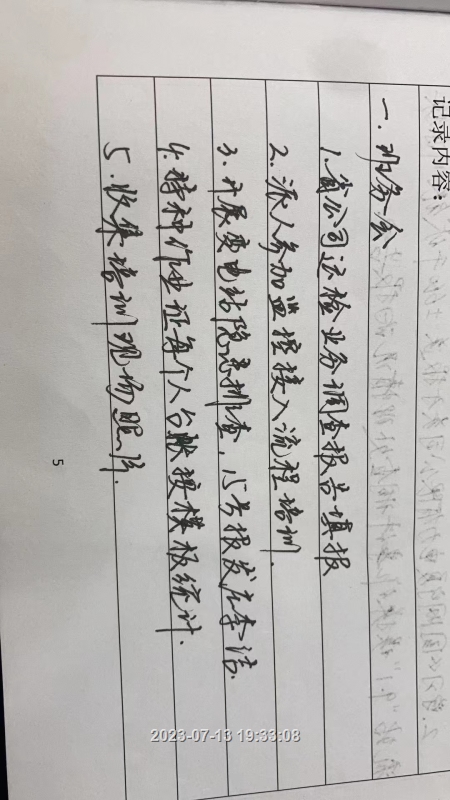 记录内容：
一. 班务会
1. 省公司运检业务调查报告填报
2. 派人参加监控接入流程培训.
3. 开展变电站隐患排查, 15号报发
4. 特种作业证每个人台账按模板统计.
5. 收集培训现场照片.
5
2023-07-13 19:33:08